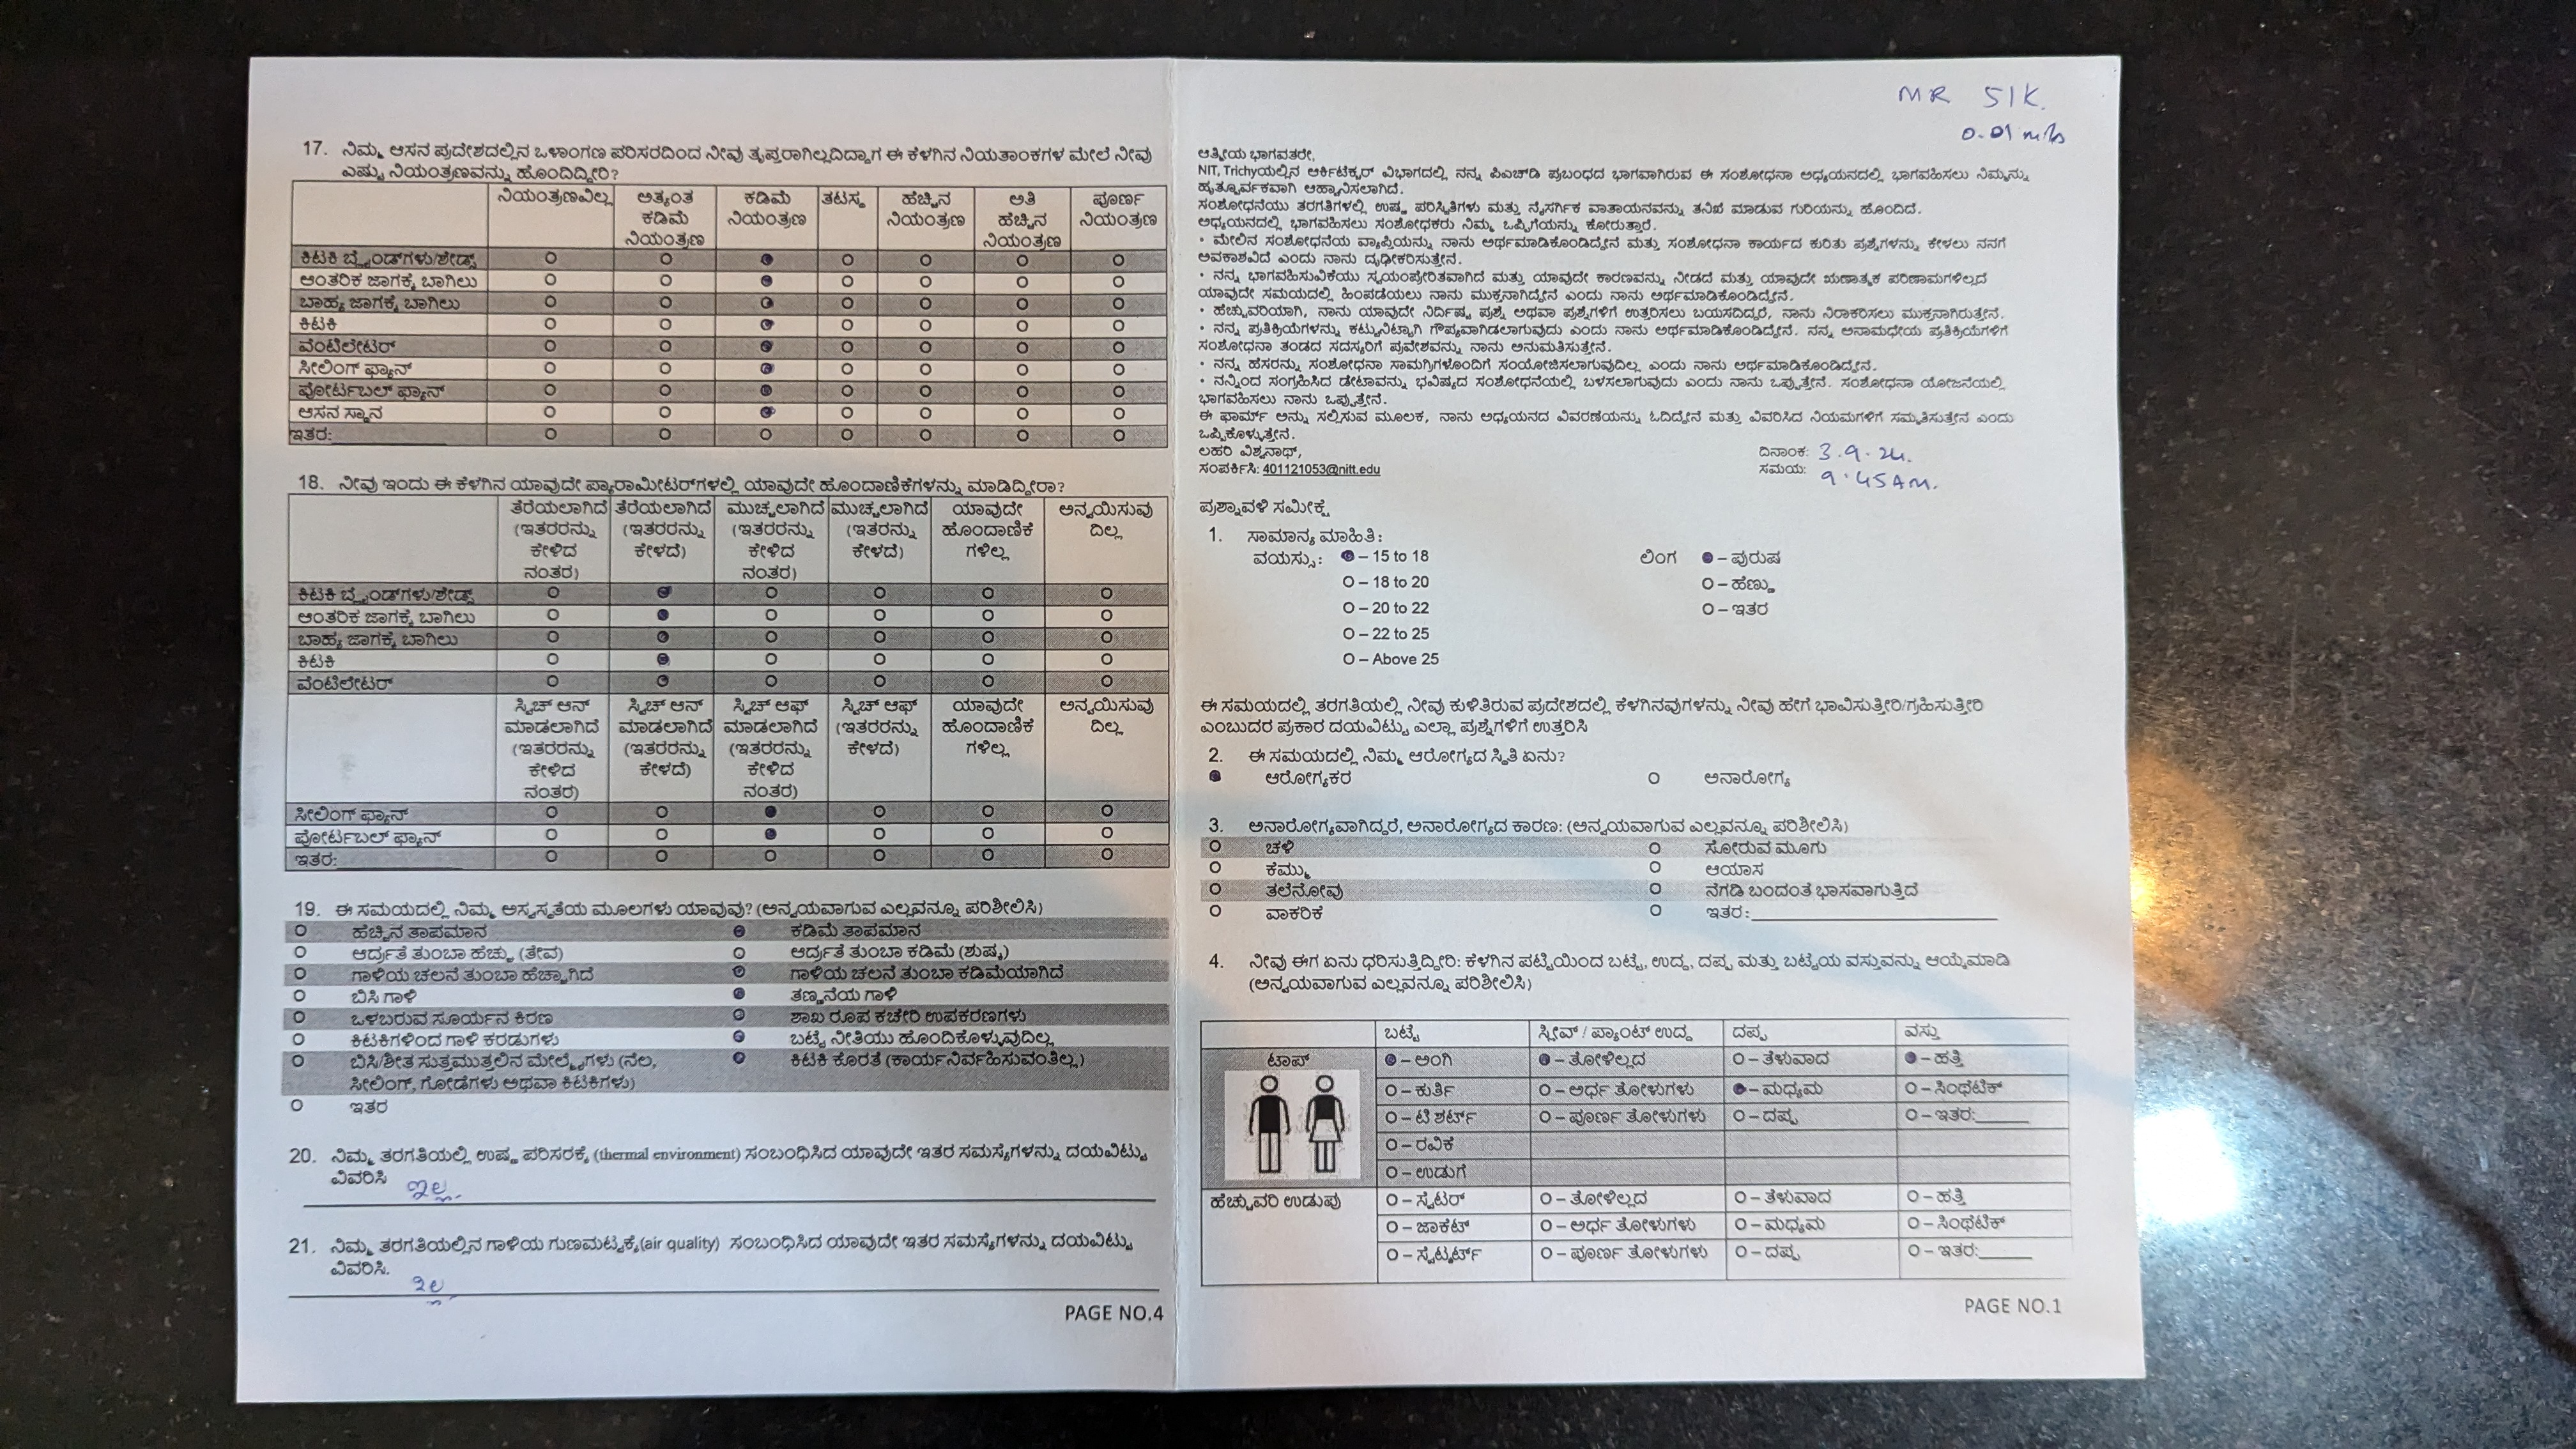 17. ನಿಮ್ಮ ಆಸನ ಪ್ರದೇಶದಲ್ಲಿನ ಒಳಾಂಗಣ ಪರಿಸರದಿಂದ ನೀವು ತೃಪ್ತರಾಗಿಲ್ಲದಿದ್ದಾಗ ಈ ಕೆಳಗಿನ ನಿಯತಾಂಕಗಳ ಮೇಲೆ ನೀವು
ಎಷ್ಟು ನಿಯಂತ್ರಣವನ್ನು ಹೊಂದಿದ್ದೀರಿ?
ನಿಯಂತ್ರಣವಿಲ್ಲ ಅತ್ಯಂತ ಕಡಿಮೆ ನಿಯಂತ್ರಣ ಕಡಿಮೆ ನಿಯಂತ್ರಣ ತಟಸ್ಥ ಹೆಚ್ಚಿನ ನಿಯಂತ್ರಣ ಅತಿ ಹೆಚ್ಚಿನ ನಿಯಂತ್ರಣ ಪೂರ್ಣ ನಿಯಂತ್ರಣ
ಕಿಟಕಿ ಬ್ಲೈಂಡ್‌ಗಳು/ಶೇಡ್ಸ್
ಆಂತರಿಕ ಜಾಗಕ್ಕೆ ಬಾಗಿಲು
ಬಾಹ್ಯ ಜಾಗಕ್ಕೆ ಬಾಗಿಲು
ಕಿಟಕಿ
ವೆಂಟಿಲೇಟರ್
ಸೀಲಿಂಗ್ ಫ್ಯಾನ್
ಪೋರ್ಟಬಲ್ ಫ್ಯಾನ್
ಆಸನ ಸ್ಥಾನ
ಇತರ:
18. ನೀವು ಇಂದು ಈ ಕೆಳಗಿನ ಯಾವುದೇ ಪ್ಯಾರಾಮೀಟರ್‌ಗಳಲ್ಲಿ ಯಾವುದೇ ಹೊಂದಾಣಿಕೆಗಳನ್ನು ಮಾಡಿದ್ದೀರಾ?
ತೆರೆಯಲಾಗಿದೆ (ಇತರರನ್ನು ಕೇಳಿದ ನಂತರ) ತೆರೆಯಲಾಗಿದೆ (ಇತರರನ್ನು ಕೇಳದೆ) ಮುಚ್ಚಲಾಗಿದೆ (ಇತರರನ್ನು ಕೇಳಿದ ನಂತರ) ಮುಚ್ಚಲಾಗಿದೆ (ಇತರರನ್ನು ಕೇಳದೆ) ಯಾವುದೇ ಹೊಂದಾಣಿಕೆ ಗಳಿಲ್ಲ ಅನ್ವಯಿಸುವು ದಿಲ್ಲ
ಕಿಟಕಿ ಬ್ಲೈಂಡ್‌ಗಳು/ಶೇಡ್ಸ್
ಆಂತರಿಕ ಜಾಗಕ್ಕೆ ಬಾಗಿಲು
ಬಾಹ್ಯ ಜಾಗಕ್ಕೆ ಬಾಗಿಲು
ಕಿಟಕಿ
ವೆಂಟಿಲೇಟರ್
ಸ್ವಿಚ್ ಆನ್ ಮಾಡಲಾಗಿದೆ (ಇತರರನ್ನು ಕೇಳಿದ ನಂತರ) ಸ್ವಿಚ್ ಆನ್ ಮಾಡಲಾಗಿದೆ (ಇತರರನ್ನು ಕೇಳದೆ) ಸ್ವಿಚ್ ಆಫ್ ಮಾಡಲಾಗಿದೆ (ಇತರರನ್ನು ಕೇಳಿದ ನಂತರ) ಸ್ವಿಚ್ ಆಫ್ (ಇತರರನ್ನು ಕೇಳದೆ) ಯಾವುದೇ ಹೊಂದಾಣಿಕೆ ಗಳಿಲ್ಲ ಅನ್ವಯಿಸುವು ದಿಲ್ಲ
ಸೀಲಿಂಗ್ ಫ್ಯಾನ್
ಪೋರ್ಟಬಲ್ ಫ್ಯಾನ್
ಇತರ:
19. ಈ ಸಮಯದಲ್ಲಿ ನಿಮ್ಮ ಅಸ್ವಸ್ಥತೆಯ ಮೂಲಗಳು ಯಾವುವು? (ಅನ್ವಯವಾಗುವ ಎಲ್ಲವನ್ನೂ ಪರಿಶೀಲಿಸಿ)
ಹೆಚ್ಚಿನ ತಾಪಮಾನ ಕಡಿಮೆ ತಾಪಮಾನ
ಆರ್ದ್ರತೆ ತುಂಬಾ ಹೆಚ್ಚು (ತೇವ) ಆರ್ದ್ರತೆ ತುಂಬಾ ಕಡಿಮೆ (ಶುಷ್ಕ)
ಗಾಳಿಯ ಚಲನೆ ತುಂಬಾ ಹೆಚ್ಚಾಗಿದೆ ಗಾಳಿಯ ಚಲನೆ ತುಂಬಾ ಕಡಿಮೆಯಾಗಿದೆ
ಬಿಸಿ ಗಾಳಿ ತಣ್ಣನೆಯ ಗಾಳಿ
ಒಳಬರುವ ಸೂರ್ಯನ ಕಿರಣ ಶಾಖ ರೂಪ ಕಚೇರಿ ಉಪಕರಣಗಳು
ಕಿಟಕಿಗಳಿಂದ ಗಾಳಿ ಕರಡುಗಳು ಬಟ್ಟೆ ನೀತಿಯು ಹೊಂದಿಕೊಳ್ಳುವುದಿಲ್ಲ
ಬಿಸಿ/ಶೀತ ಸುತ್ತಮುತ್ತಲಿನ ಮೇಲ್ಮೈಗಳು (ನೆಲ, ಕಿಟಕಿ ಕೊರತೆ (ಕಾರ್ಯನಿರ್ವಹಿಸುವಂತಿಲ್ಲ)
ಸೀಲಿಂಗ್, ಗೋಡೆಗಳು ಅಥವಾ ಕಿಟಕಿಗಳು)
ಇತರ
20. ನಿಮ್ಮ ತರಗತಿಯಲ್ಲಿ ಉಷ್ಣ ಪರಿಸರಕ್ಕೆ (thermal environment) ಸಂಬಂಧಿಸಿದ ಯಾವುದೇ ಇತರ ಸಮಸ್ಯೆಗಳನ್ನು ದಯವಿಟ್ಟು
ವಿವರಿಸಿ ಇಲ್ಲ.
21. ನಿಮ್ಮ ತರಗತಿಯಲ್ಲಿನ ಗಾಳಿಯ ಗುಣಮಟ್ಟಕ್ಕೆ(air quality) ಸಂಬಂಧಿಸಿದ ಯಾವುದೇ ಇತರ ಸಮಸ್ಯೆಗಳನ್ನು ದಯವಿಟ್ಟು
ವಿವರಿಸಿ. ಇಲ್ಲ
PAGE NO.4
MR 51K.
0.01 m/s
ಆತ್ಮೀಯ ಭಾಗವತರೇ,
NIT, Trichyಯಲ್ಲಿನ ಆರ್ಕಿಟೆಕ್ಚರ್ ವಿಭಾಗದಲ್ಲಿ ನನ್ನ ಪಿಎಚ್‌ಡಿ ಪ್ರಬಂಧದ ಭಾಗವಾಗಿರುವ ಈ ಸಂಶೋಧನಾ ಅಧ್ಯಯನದಲ್ಲಿ ಭಾಗವಹಿಸಲು ನಿಮ್ಮನ್ನು
ಹೃತ್ಪೂರ್ವಕವಾಗಿ ಆಹ್ವಾನಿಸಲಾಗಿದೆ.
ಸಂಶೋಧನೆಯು ತರಗತಿಗಳಲ್ಲಿ ಉಷ್ಣ ಪರಿಸ್ಥಿತಿಗಳು ಮತ್ತು ನೈಸರ್ಗಿಕ ವಾತಾಯನವನ್ನು ತನಿಖೆ ಮಾಡುವ ಗುರಿಯನ್ನು ಹೊಂದಿದೆ.
ಅಧ್ಯಯನದಲ್ಲಿ ಭಾಗವಹಿಸಲು ಸಂಶೋಧಕರು ನಿಮ್ಮ ಒಪ್ಪಿಗೆಯನ್ನು ಕೋರುತ್ತಾರೆ.
• ಮೇಲಿನ ಸಂಶೋಧನೆಯ ವ್ಯಾಪ್ತಿಯನ್ನು ನಾನು ಅರ್ಥಮಾಡಿಕೊಂಡಿದ್ದೇನೆ ಮತ್ತು ಸಂಶೋಧನಾ ಕಾರ್ಯದ ಕುರಿತು ಪ್ರಶ್ನೆಗಳನ್ನು ಕೇಳಲು ನನಗೆ
ಅವಕಾಶವಿದೆ ಎಂದು ನಾನು ದೃಢೀಕರಿಸುತ್ತೇನೆ.
• ನನ್ನ ಭಾಗವಹಿಸುವಿಕೆಯು ಸ್ವಯಂಪ್ರೇರಿತವಾಗಿದೆ ಮತ್ತು ಯಾವುದೇ ಕಾರಣವನ್ನು ನೀಡದೆ ಮತ್ತು ಯಾವುದೇ ಋಣಾತ್ಮಕ ಪರಿಣಾಮಗಳಿಲ್ಲದೆ
ಯಾವುದೇ ಸಮಯದಲ್ಲಿ ಹಿಂಪಡೆಯಲು ನಾನು ಮುಕ್ತನಾಗಿದ್ದೇನೆ ಎಂದು ನಾನು ಅರ್ಥಮಾಡಿಕೊಂಡಿದ್ದೇನೆ.
• ಹೆಚ್ಚುವರಿಯಾಗಿ, ನಾನು ಯಾವುದೇ ನಿರ್ದಿಷ್ಟ ಪ್ರಶ್ನೆ ಅಥವಾ ಪ್ರಶ್ನೆಗಳಿಗೆ ಉತ್ತರಿಸಲು ಬಯಸದಿದ್ದರೆ, ನಾನು ನಿರಾಕರಿಸಲು ಮುಕ್ತನಾಗಿರುತ್ತೇನೆ.
• ನನ್ನ ಪ್ರತಿಕ್ರಿಯೆಗಳನ್ನು ಕಟ್ಟುನಿಟ್ಟಾಗಿ ಗೌಪ್ಯವಾಗಿಡಲಾಗುವುದು ಎಂದು ನಾನು ಅರ್ಥಮಾಡಿಕೊಂಡಿದ್ದೇನೆ. ನನ್ನ ಅನಾಮಧೇಯ ಪ್ರತಿಕ್ರಿಯೆಗಳಿಗೆ
ಸಂಶೋಧನಾ ತಂಡದ ಸದಸ್ಯರಿಗೆ ಪ್ರವೇಶವನ್ನು ನಾನು ಅನುಮತಿಸುತ್ತೇನೆ.
• ನನ್ನ ಹೆಸರನ್ನು ಸಂಶೋಧನಾ ಸಾಮಗ್ರಿಗಳೊಂದಿಗೆ ಸಂಯೋಜಿಸಲಾಗುವುದಿಲ್ಲ ಎಂದು ನಾನು ಅರ್ಥಮಾಡಿಕೊಂಡಿದ್ದೇನೆ.
• ನನ್ನಿಂದ ಸಂಗ್ರಹಿಸಿದ ಡೇಟಾವನ್ನು ಭವಿಷ್ಯದ ಸಂಶೋಧನೆಯಲ್ಲಿ ಬಳಸಲಾಗುವುದು ಎಂದು ನಾನು ಒಪ್ಪುತ್ತೇನೆ. ಸಂಶೋಧನಾ ಯೋಜನೆಯಲ್ಲಿ
ಭಾಗವಹಿಸಲು ನಾನು ಒಪ್ಪುತ್ತೇನೆ.
ಈ ಫಾರ್ಮ್ ಅನ್ನು ಸಲ್ಲಿಸುವ ಮೂಲಕ, ನಾನು ಅಧ್ಯಯನದ ವಿವರಣೆಯನ್ನು ಓದಿದ್ದೇನೆ ಮತ್ತು ವಿವರಿಸಿದ ನಿಯಮಗಳಿಗೆ ಸಮ್ಮತಿಸುತ್ತೇನೆ ಎಂದು
ಒಪ್ಪಿಕೊಳ್ಳುತ್ತೇನೆ.
ಲಹರಿ ವಿಶ್ವನಾಥ್, ದಿನಾಂಕ: 3.9.24.
ಸಂಪರ್ಕಿಸಿ: 401121053@nitt.edu ಸಮಯ: 9.45AM.
ಪ್ರಶ್ನಾವಳಿ ಸಮೀಕ್ಷೆ
1. ಸಾಮಾನ್ಯ ಮಾಹಿತಿ:
ವಯಸ್ಸು: – 15 to 18 ಲಿಂಗ – ಪುರುಷ
O – 18 to 20 O – ಹೆಣ್ಣು
O – 20 to 22 O – ಇತರ
O – 22 to 25
O – Above 25
ಈ ಸಮಯದಲ್ಲಿ ತರಗತಿಯಲ್ಲಿ ನೀವು ಕುಳಿತಿರುವ ಪ್ರದೇಶದಲ್ಲಿ ಕೆಳಗಿನವುಗಳನ್ನು ನೀವು ಹೇಗೆ ಭಾವಿಸುತ್ತೀರಿ/ಗ್ರಹಿಸುತ್ತೀರಿ
ಎಂಬುದರ ಪ್ರಕಾರ ದಯವಿಟ್ಟು ಎಲ್ಲಾ ಪ್ರಶ್ನೆಗಳಿಗೆ ಉತ್ತರಿಸಿ
2. ಈ ಸಮಯದಲ್ಲಿ ನಿಮ್ಮ ಆರೋಗ್ಯದ ಸ್ಥಿತಿ ಏನು?
ಆರೋಗ್ಯಕರ ಅನಾರೋಗ್ಯ
3. ಅನಾರೋಗ್ಯವಾಗಿದ್ದರೆ, ಅನಾರೋಗ್ಯದ ಕಾರಣ: (ಅನ್ವಯವಾಗುವ ಎಲ್ಲವನ್ನೂ ಪರಿಶೀಲಿಸಿ)
ಚಳಿ ಸೋರುವ ಮೂಗು
ಕೆಮ್ಮು ಆಯಾಸ
ತಲೆನೋವು ನೆಗಡಿ ಬಂದಂತೆ ಭಾಸವಾಗುತ್ತಿದೆ
ವಾಕರಿಕೆ ಇತರ:
4. ನೀವು ಈಗ ಏನು ಧರಿಸುತ್ತಿದ್ದೀರಿ: ಕೆಳಗಿನ ಪಟ್ಟಿಯಿಂದ ಬಟ್ಟೆ, ಉದ್ದ, ದಪ್ಪ ಮತ್ತು ಬಟ್ಟೆಯ ವಸ್ತುವನ್ನು ಆಯ್ಕೆಮಾಡಿ
(ಅನ್ವಯವಾಗುವ ಎಲ್ಲವನ್ನೂ ಪರಿಶೀಲಿಸಿ)
ಬಟ್ಟೆ ಸ್ಲೀವ್ / ಪ್ಯಾಂಟ್ ಉದ್ದ ದಪ್ಪ ವಸ್ತು
ಟಾಪ್ – ಅಂಗಿ – ತೋಳಿಲ್ಲದ O – ತೆಳುವಾದ – ಹತ್ತಿ
O – ಕುರ್ತಿ O – ಅರ್ಧ ತೋಳುಗಳು – ಮಧ್ಯಮ O – ಸಿಂಥೆಟಿಕ್
O – ಟಿ ಶರ್ಟ್ O – ಪೂರ್ಣ ತೋಳುಗಳು O – ದಪ್ಪ O – ಇತರ:
O – ರವಿಕೆ
O – ಉಡುಗೆ
ಹೆಚ್ಚುವರಿ ಉಡುಪು O – ಸ್ವೆಟರ್ O – ತೋಳಿಲ್ಲದ O – ತೆಳುವಾದ O – ಹತ್ತಿ
O – ಜಾಕೆಟ್ O – ಅರ್ಧ ತೋಳುಗಳು O – ಮಧ್ಯಮ O – ಸಿಂಥೆಟಿಕ್
O – ಸ್ವೆಟ್ಶರ್ಟ್ O – ಪೂರ್ಣ ತೋಳುಗಳು O – ದಪ್ಪ O – ಇತರ:
PAGE NO.1